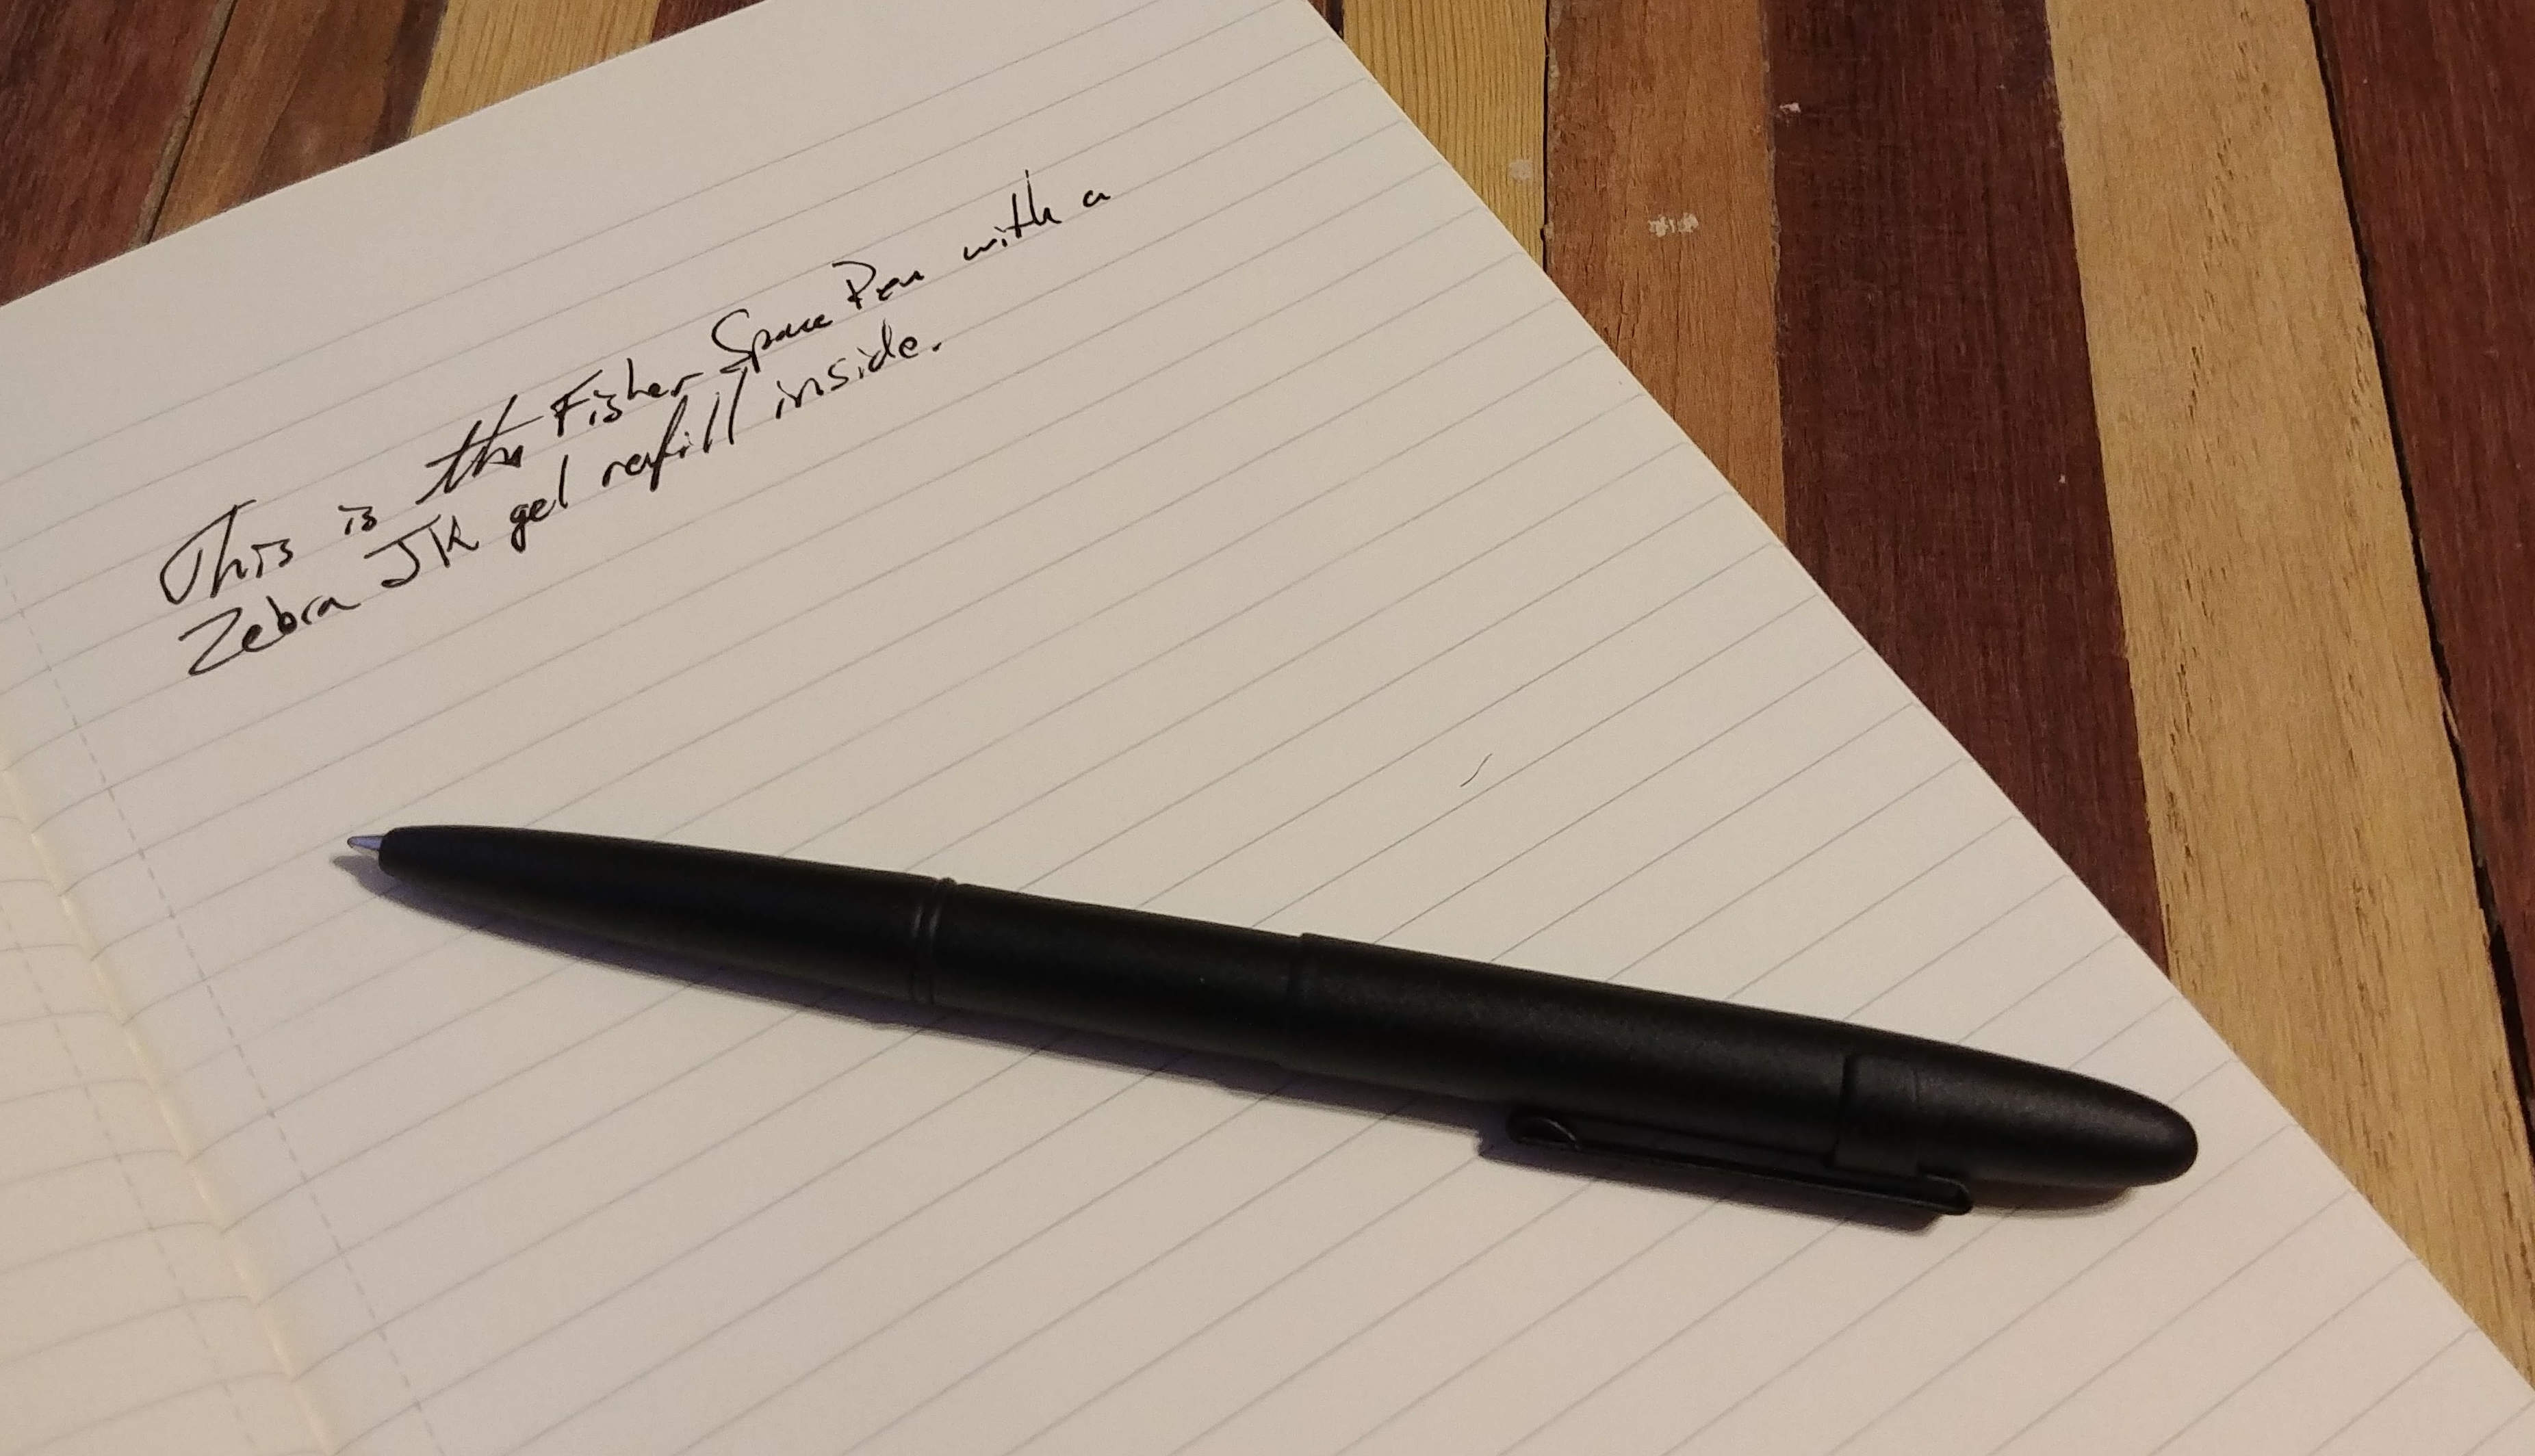 This is the Fisher Space Pen with a
Zebra JK gel refill inside.